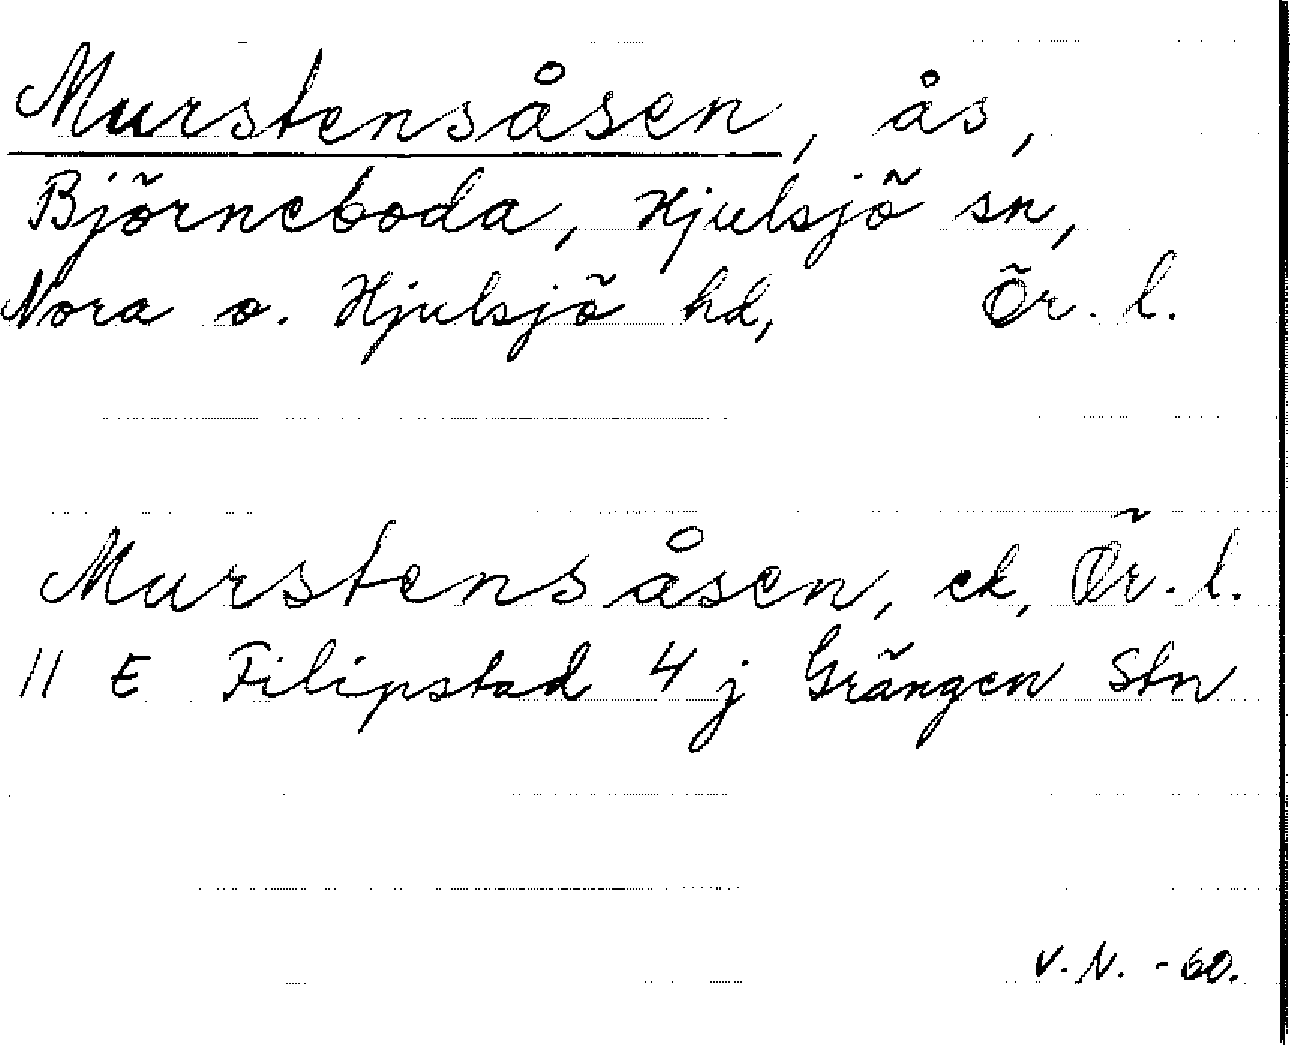 Murstensåsen, ås,
Björneboda, Hjulsjö sn,
Nora o. Hjulsjö hd, Ör. l.
Murstensåsen, ek, Ör. l.
11 E Filipstad 4 j Grängen Stn
V. N. -60.